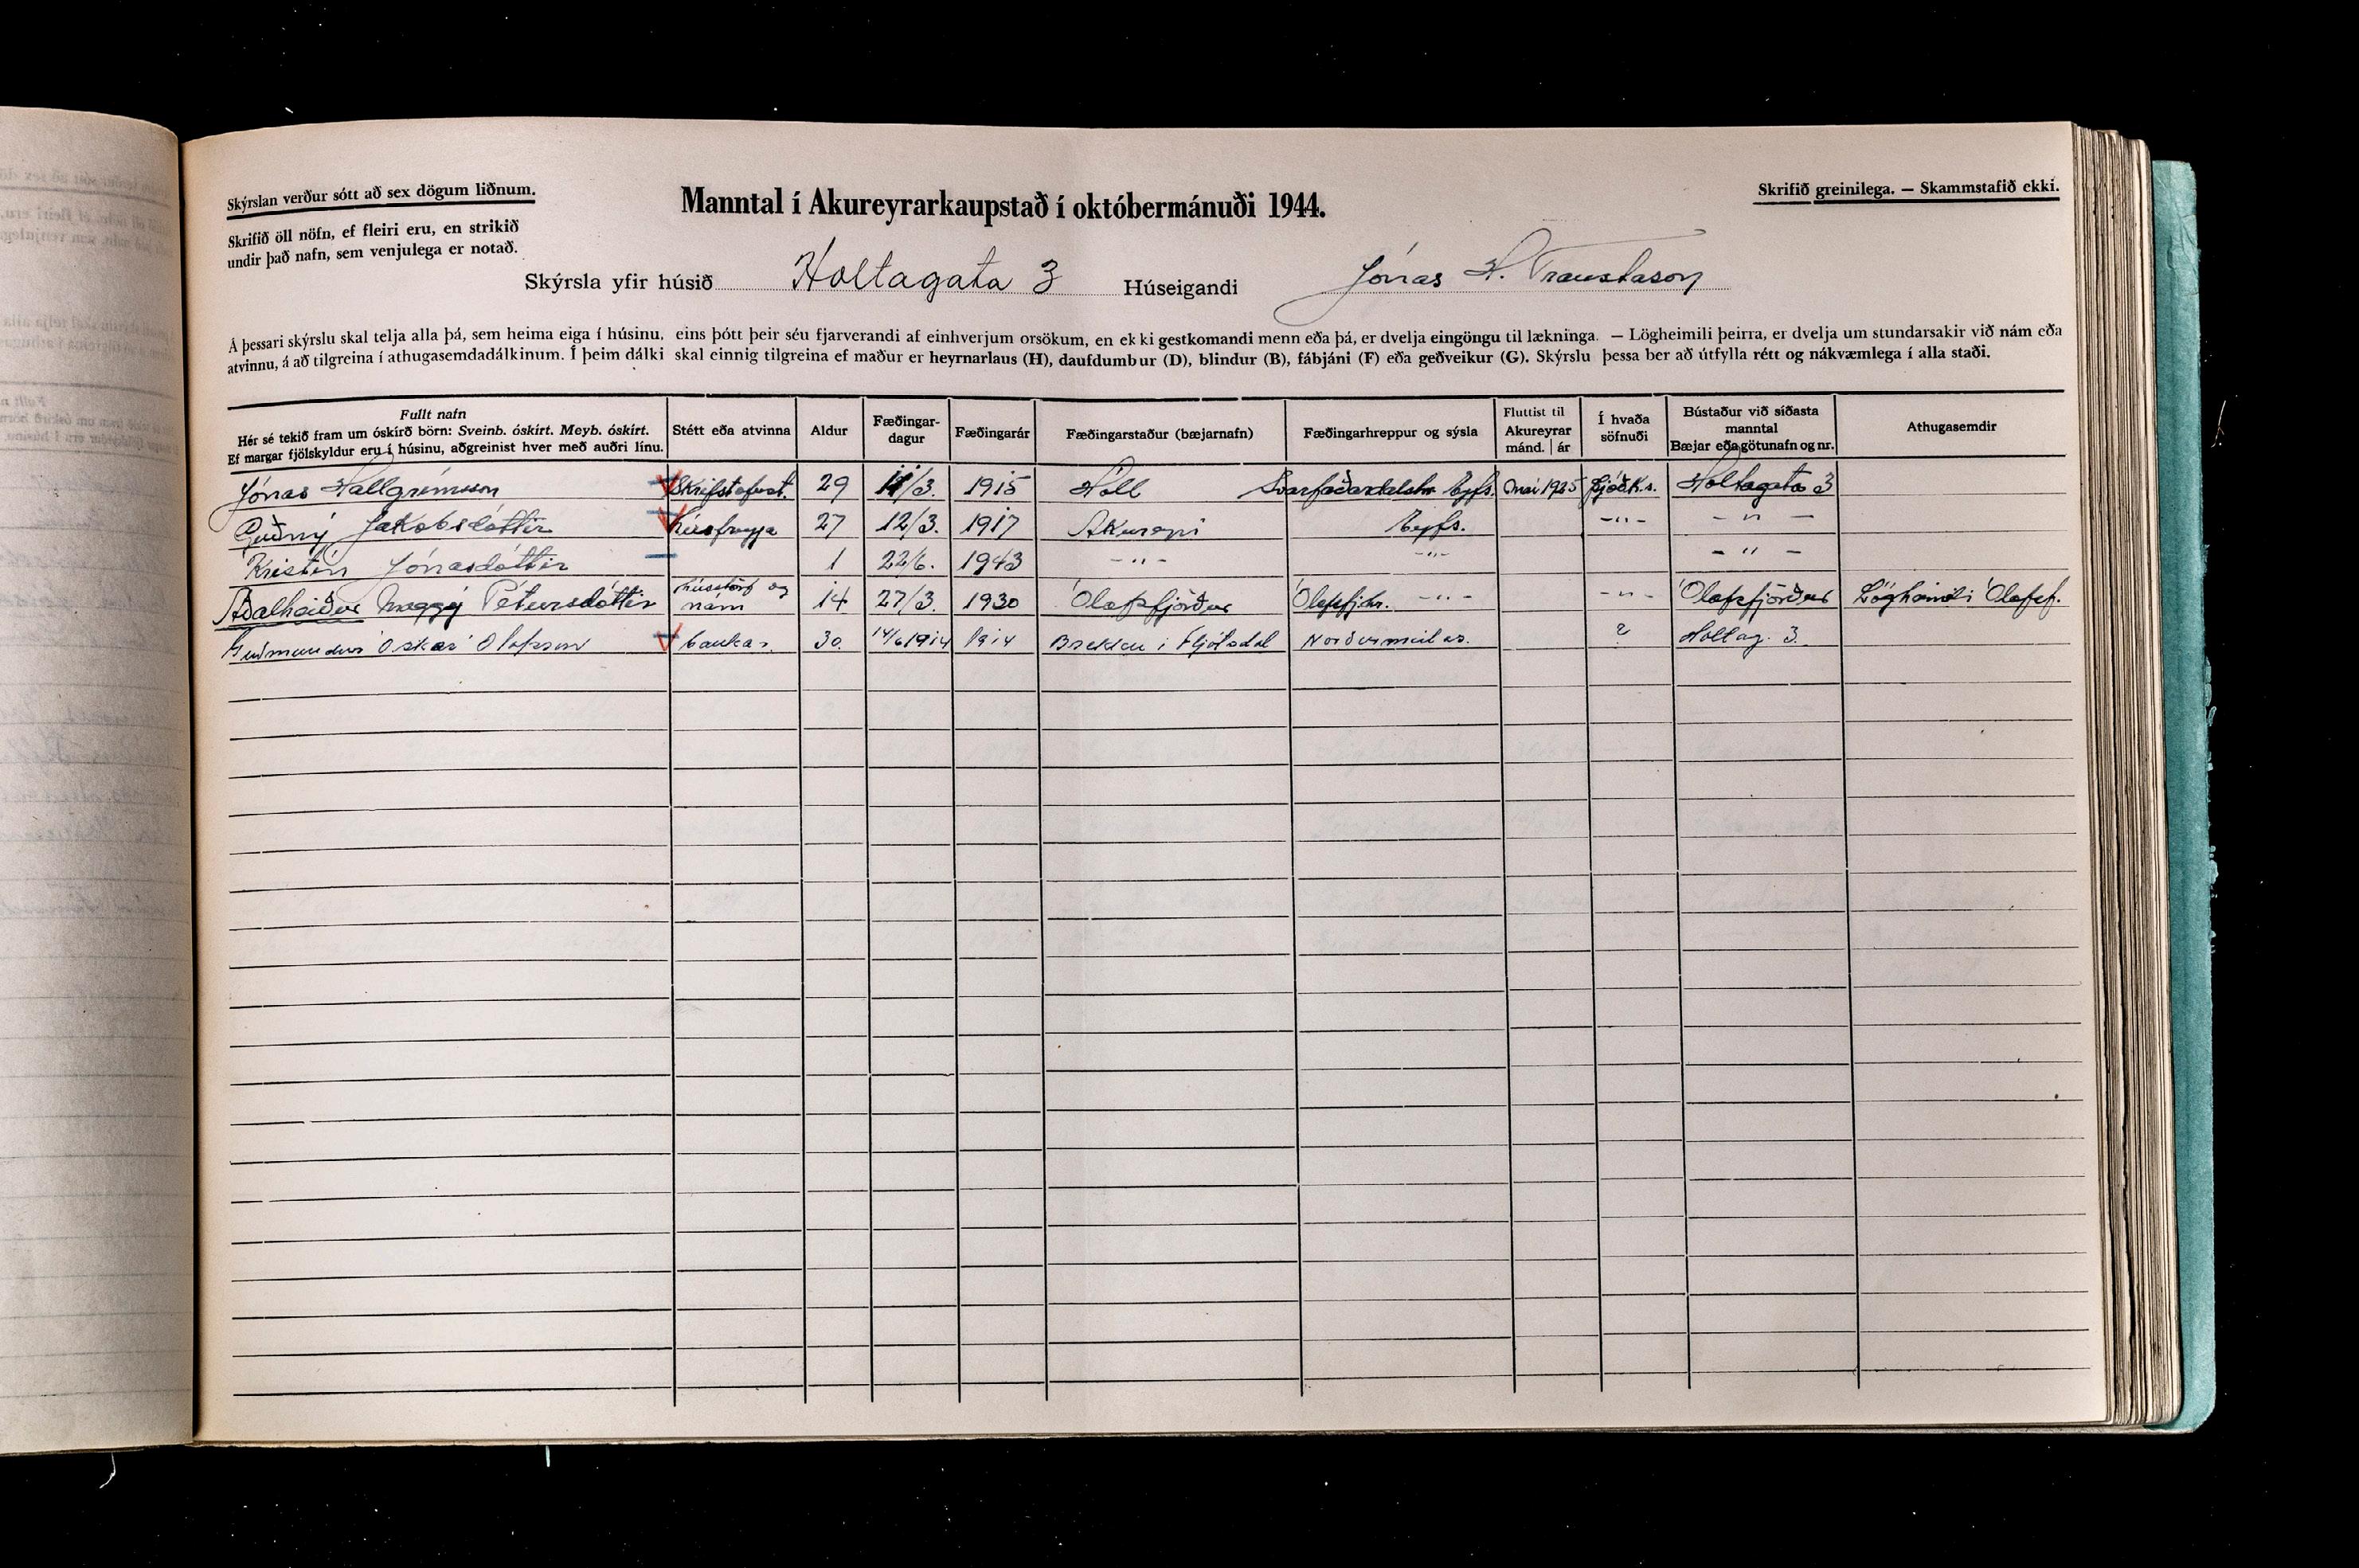 Skýrslan verður sótt að sex dögum liðnum.
Manntal í Akureyrarkaupstað í októbermánuði 1944.
Skrifið greinilega. — Skammstafið ekki.
Skrifið öll nöfn, ef fleiri eru, en strikið
undir það nafn, sem venjulega er notað.
Skýrsla yfir húsið Holtagata 3 Húseigandi Jónas H. Traustason
Á þessari skýrslu skal telja alla þá, sem heima eiga í húsinu, eins þótt þeir séu fjarverandi af einhverjum orsökum, en ekki gestkomandi menn eða þá, er dvelja eingöngu til lækninga. — Lögheimili þeirra, er dvelja um stundarsakir við nám eða
atvinnu, á að tilgreina í athugasemdadálkinum. Í þeim dálki skal einnig tilgreina ef maður er heyrnarlaus (H), daufdumbur (D), blindur (B), fábjáni (F) eða geðveikur (G). Skýrslu þessa ber að útfylla rétt og nákvæmlega í alla staði.
Fullt nafn
Hér sé tekið fram um óskírð börn: Sveinb. óskírt. Meyb. óskírt.
Ef margar fjölskyldur eru í húsinu, aðgreinist hver með auðri línu.
Stétt eða atvinna
Aldur
Fæðingar-
dagur
Fæðingarár
Fæðingarstaður (bæjarnafn)
Fæðingarhreppur og sýsla
Fluttist til
Akureyrar
mánd. | ár
Í hvaða
söfnuði
Bústaður við síðasta
manntal
Bæjar eða götunafn og nr.
Athugasemdir
Jónas Hallgrímsson Skrifstofust. 29 11/3. 1915 Höll Svarfaðardalshr. Eyfs. Maí 1925 Þjóðk. Holtagata 3
Guðný Jakobsdóttir húsfreyja 27 12/3. 1917 Akureyri Eyfs. -"- - " -
Kristín Jónasdóttir 1 22/6. 1943 -"- -"- - " -
Aðalheiður Maggý Pétursdóttir hússtörf og nám 14 27/3. 1930 Ólafsfjörður Ólafsfj.hr. -"- -"- Ólafsfjörður Lögheimili Ólafsf.
Guðmundur Óskar Ólafsson bankar. 30. 14/6 1914 1914 Brekku í Fljótsdal Norðurmúlas. ? Holtag. 3.